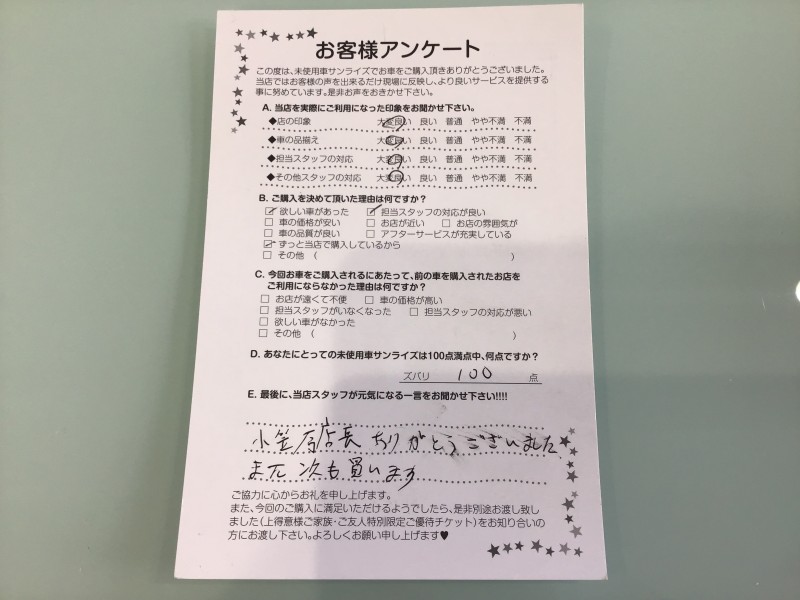 お客様アンケート
この度は、未使用車サンライズでお車をご購入頂きありがとうございました。
当店ではお客様の声を出来るだけ現場に反映し、より良いサービスを提供する
事に努めています。是非お声をおきかせ下さい。
A. 当店を実際にご利用になった印象をお聞かせ下さい。
◆店の印象 大変良い 良い 普通 やや不満 不満
◆車の品揃え 大変良い 良い 普通 やや不満 不満
◆担当スタッフの対応 大変良い 良い 普通 やや不満 不満
◆その他スタッフの対応 大変良い 良い 普通 やや不満 不満
B. ご購入を決めて頂いた理由は何ですか?
☑ 欲しい車があった ☑ 担当スタッフの対応が良い
□ 車の価格が安い □ お店が近い □ お店の雰囲気が
□ 車の品質が良い □ アフターサービスが充実している
☑ ずっと当店で購入しているから
□ その他 ( )
C. 今回お車をご購入されるにあたって、前の車を購入されたお店を
ご利用にならなかった理由は何ですか?
□ お店が遠くて不便 □ 車の価格が高い
□ 担当スタッフがいなくなった □ 担当スタッフの対応が悪い
□ 欲しい車がなかった
□ その他 ( )
D. あなたにとっての未使用車サンライズは100点満点中、何点ですか?
ズバリ 100 点
E. 最後に、当店スタッフが元気になる一言をお聞かせ下さい!!!!
小笠原店長 ありがとうございました
また 次も買います
ご協力に心からお礼を申し上げます。
また、今回のご購入に満足いただけるようでしたら、是非別途お渡し致し
ました(上得意様ご家族・ご友人特別限定ご優待チケット)をお知り合いの
方にお渡し下さい。よろしくお願い申し上げます♥